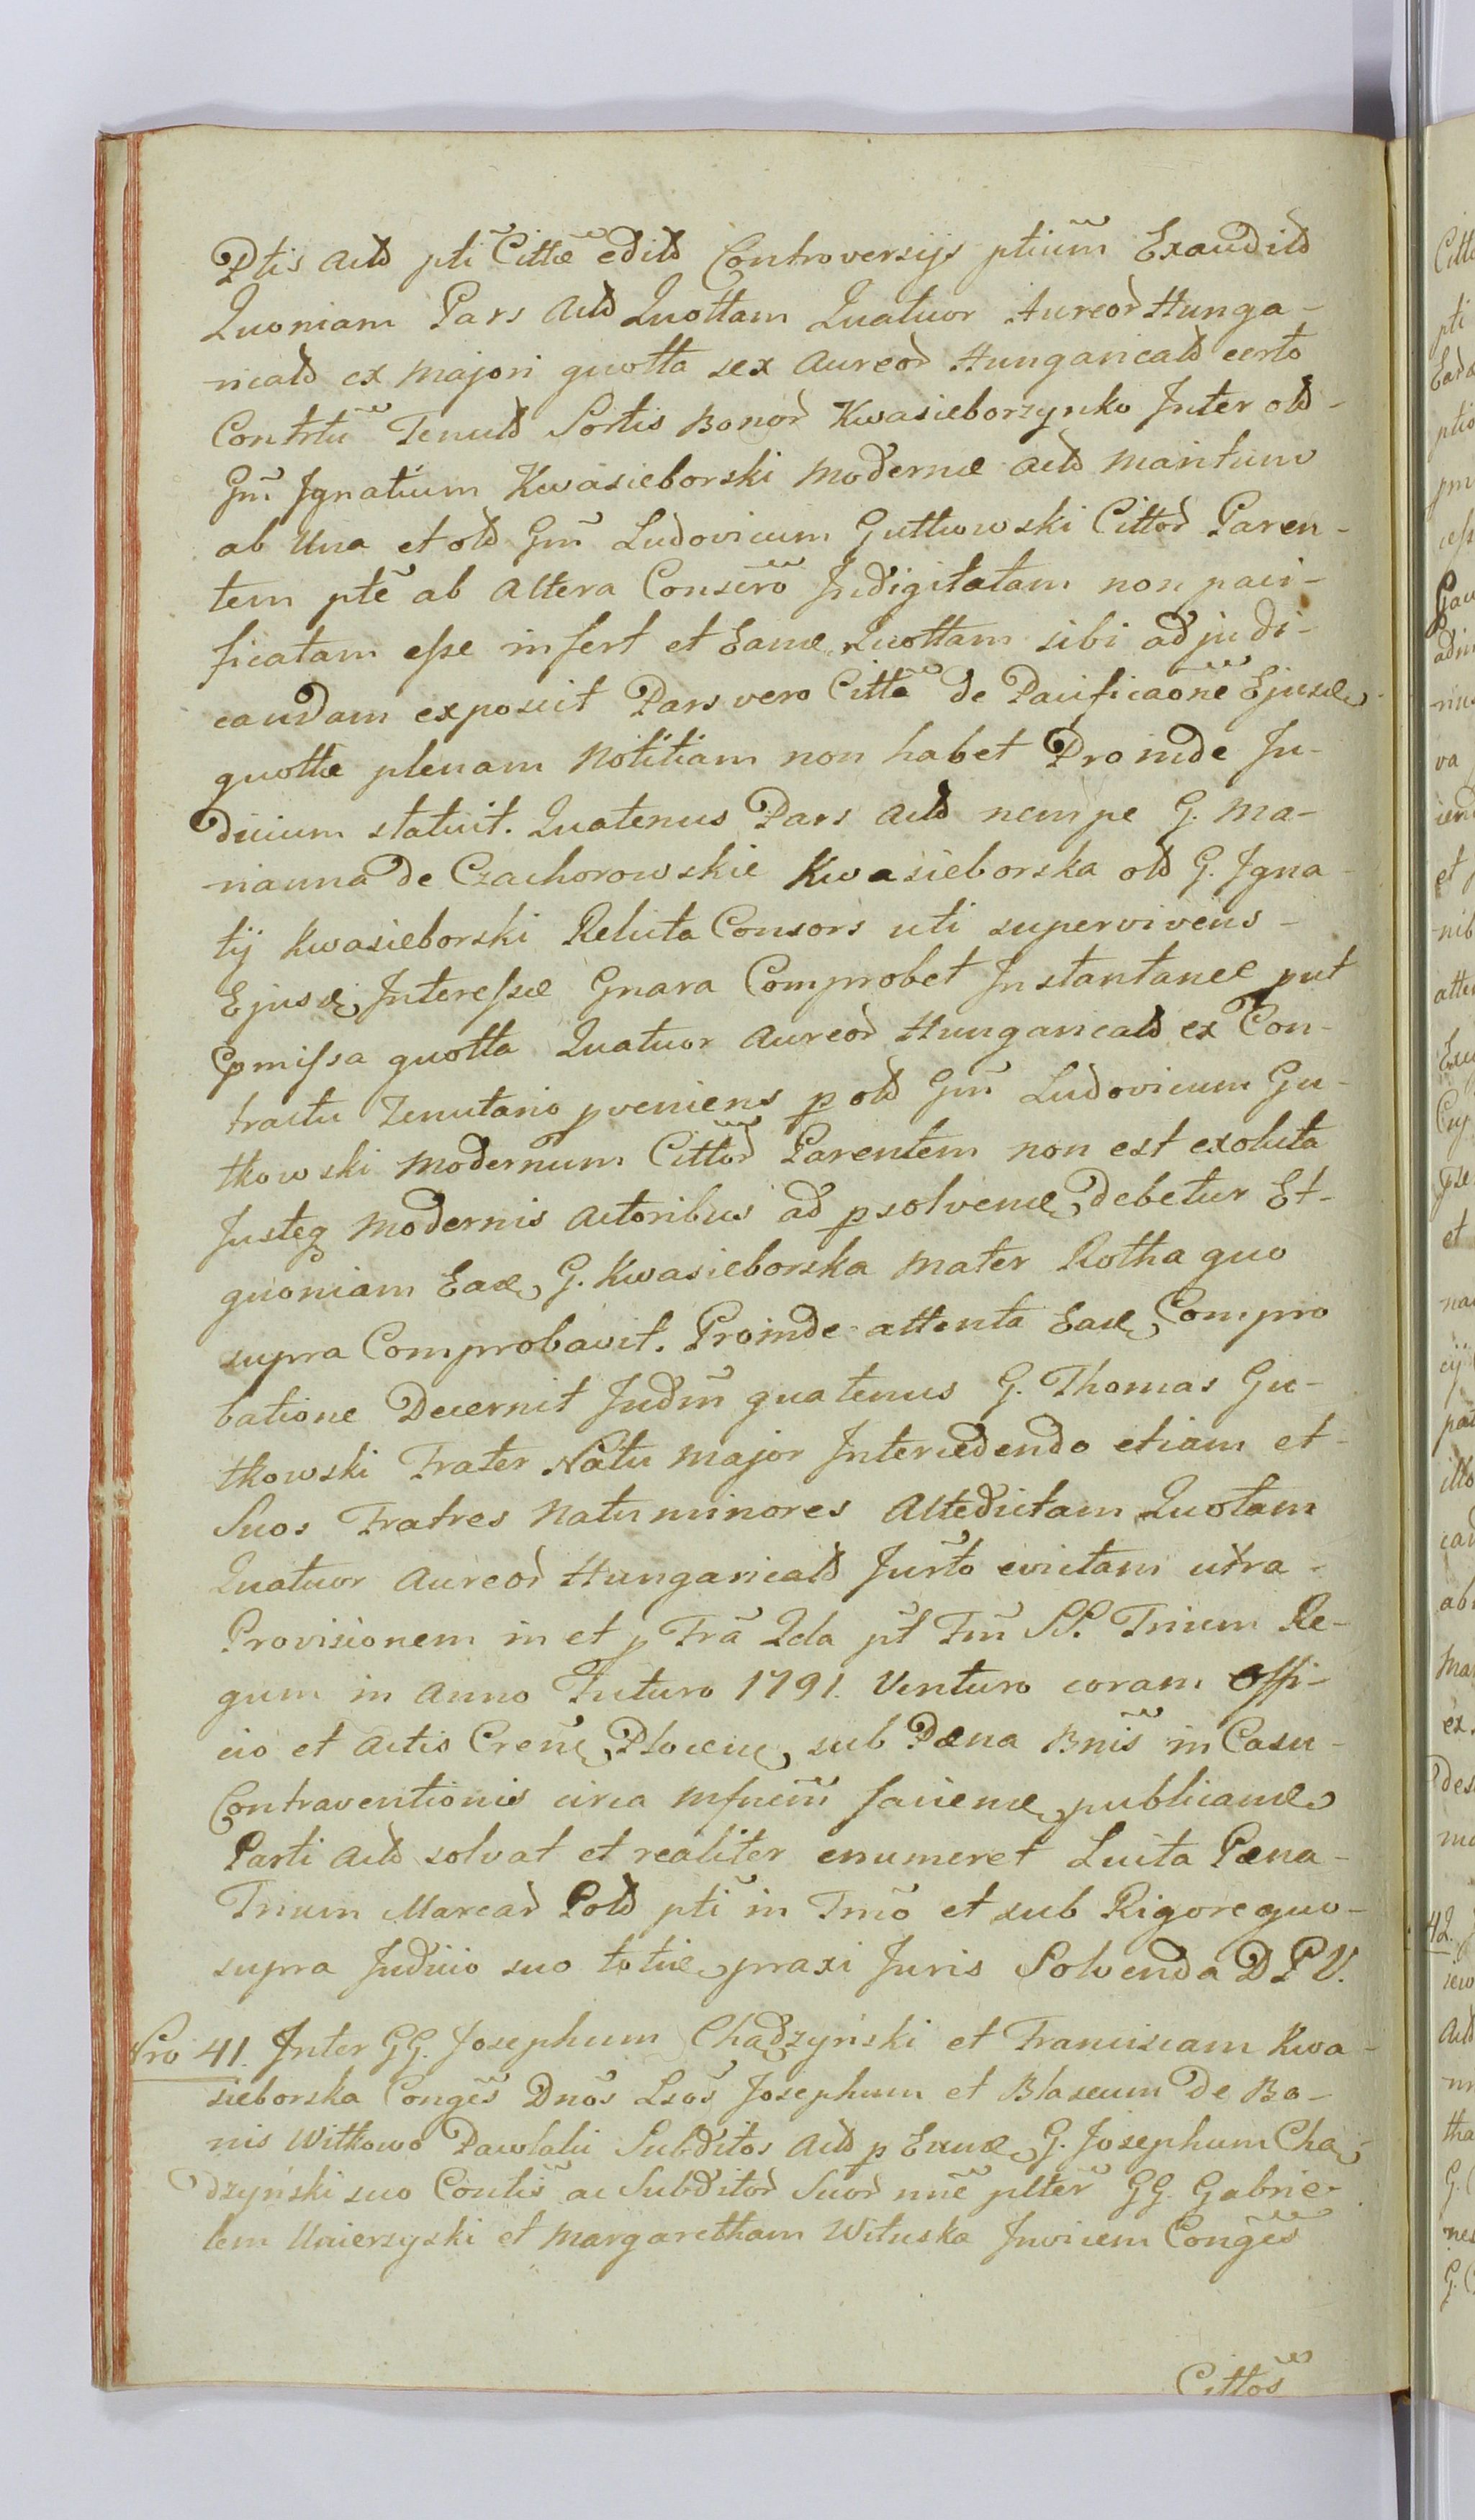 Ptis Actđ pti Cittæ editđ Controversijs ptium Exauditđ
Quoniam Pars Actđ Quottam Quatuor Aureođ Hunga-
ricalđ ex majori quotta sex Aureođ Hungaricalđ certo
Contrtu Tenutđ Sortis Bonođ Kwasieborzynko Inter olđ-
Gm̃ Ignatium Kwasieborski Modernæ Actđ Maritum
ab Una et olđ Gm̃ Ludovicum Guttkowski Cittođ Paren-
tem pte ab Altera Conscrõ Indigitatam non paci-
ficatam esse infert et Eamæ Quottam sibi adjudi-
candam exposcit Pars vero Citta de Pacificaone Ejusæ
quottæ plenam Notitiam non habet Proinde Ju-
dicium statuit. Quatenus Pars Actđ nempe G. Ma-
rianna de Czachorowskie Kwasieborska olđ G. Igna-
tij Kwasieborski Relicta Consors uti supervivens-
Ejusæ Interessæ Gnara Comprobet Instantanee put
pmissa quotta Quatuor Aureođ Hungaricalđ ex Con-
tractu Tenutario pveniens p olđ Gm̃ Ludovicum Gu-
tkowski Modernum Cittođ Parentem non est exoluta
Justeq Modernis Actoribus ad psolvenæ debetur Et-
quoniam Eaæ G. Kwasieborska Mater Rotha quo
supra Comprobavit. Proinde attenta Eaæ Compro
batione Decernit Judm̃ quatenus G. Thomas Gu-
tkowski Frater Natu Major Intercedendo etiam et-
Suos Fratres Natu minores Altedictam Quotam
Quatuor Aureođ Hungaricalđ Jurto evictam utra-
Provisionem in et p Fra Qda pt Fm̃ SS. Trium Re-
gum in Anno Futuro 1791. Venturo coram Offi-
cio et Actis Cren Plocen sub Pæna Bnis in Casu-
Contraventionis circa Mfnem̃ facienæ publicamæ
Parti Actđ solvat et realiter enumeret Luita Pæna-
Trium Marcađ Polđ pti in Tmõ et sub Rigore quo-
supra Judicio suo totiæ praxi Juris Solvenda D P V.
Nro 41. Inter GG. Josephum Chądzyński et Franciscam Kwa-
sieborska Conges Dnos Lsos Josephum et Blaseum De Bo-
nis Witkowo Pawlaki Subditos Actđ p Eunæ G. Josephum Chą-
dzyński suo Contis ac Subditođ Suođ nne pltter GG. Gabrie-
lem Unierzyski et Margaretham Wituska Invicem Conges
Cittos